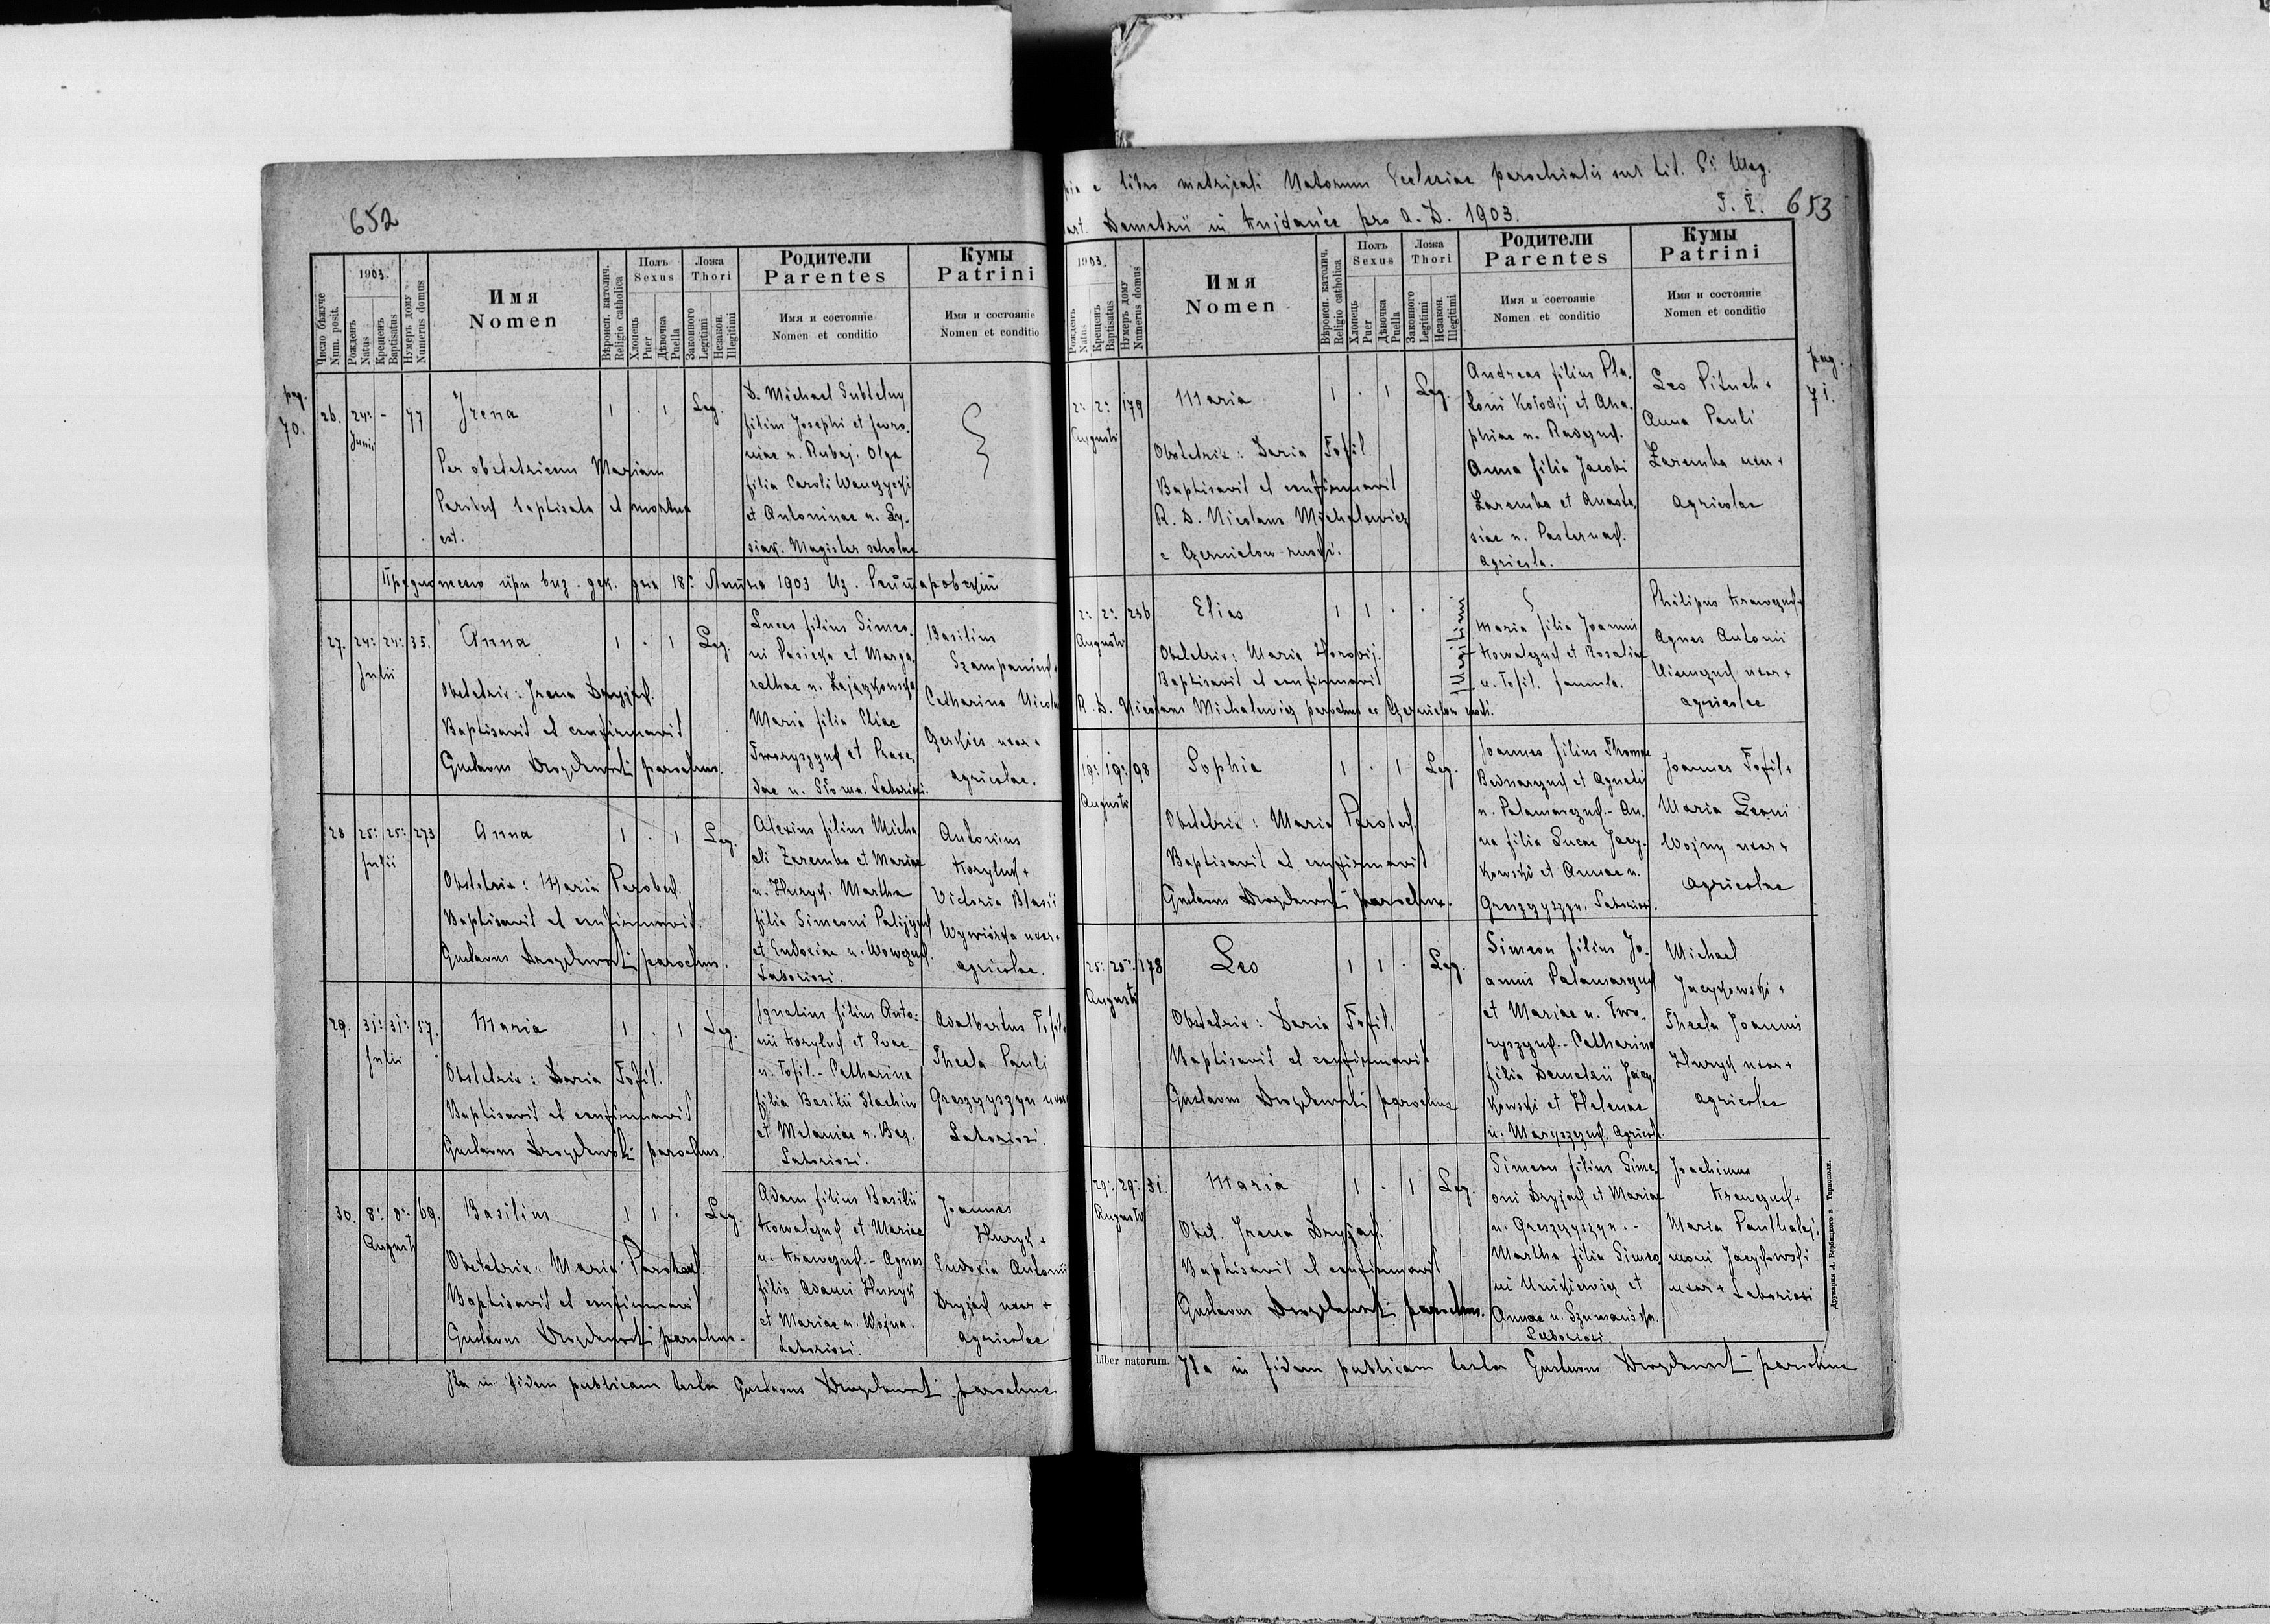 652
Число бѣжуче
Num. posit.
1903.
Рожденъ
Natus
Крещенъ
Baptisatus
Нумеръ дому
Numerus domus
Имя
Nomen
Вѣроисп. католич.
Religio catholica
Полъ
Sexus
Хлопець
Puer
Дѣвочка
Puella
Ложа
Thori
Законного
Legitimi
Незакон.
Illegitimi
Родители
Parentes
Имя и состояніе
Nomen et conditio
Кумы
Patrini
Имя и состояніе
Nomen et conditio
pag.
70.
26. 24: - 77 Irena 1 . 1 Leg.
Junii
Per obstetricem Mariam
baptisata et mortua
est.
D. Michael Subtelny
filius Josephi et
niae n. Rubaj. Olga
filia Caroli Wanczycki
et Antoninae n. Ły-
siak. Magister scholae
18: 1903
27. 24: 24: 35. Anna 1 . 1 Leg.
Julii
Obstetrix: Irena Dryjach.
Baptisavit et confirmavit
Gustavus Drozdowski parochus.
Lucas filius Simeo-
ni Pasieka et Marga-
rethae n. Zajączkowska
Maria filia Eliae
Tworyszczuk et Praxe-
dae n. Słoma. Laboriosi.
Basilius
+
Catharina
uxor +
agricolae.
28 25: 25: 273 Anna 1 . 1 Leg.
Julii
Obstetrix: Maria Parobek.
Baptisavit et confirmavit
Gustavus Drozdowski parochus.
Alexius filius Micha
eli Zaremba et Mariae
n. Huryk. Martha
filia Simeoni Palijczuk
et Eudoxiae n. Wowczuk.
Laboriosi.
Antonius
Koryluk +
Victoria Blasii
Wywiórka uxor +
agricolae.
29. 31: 31: 57. Maria 1 . 1 Leg.
Julii
Obstetrix: Daria Tofil.
Baptisavit et confirmavit
Gustavus Drozdowski parochus.
Ignatius filius Anto-
nii Koryluk et Evae
n. Tofil. - Catharina
filia Basilii Stachiw
et Melaniae n. Bez.
Laboriosi.
Adalbertus Tofil
Thecla Pauli
Greszczyszyn uxor
Laboriosi.
30. 8: 8: 69. Basilius 1 1 . Leg.
Augusti
Obstetrix: Maria Parobek.
Baptisavit et confirmavit
Gustavus Drozdowski parochus.
Adam filius Basilii
Kowalczuk et Mariae
n. Krawczuk. - Agnes
filia Adami Huryk
et Mariae n. Wojna.
Laboriosi.
Joannes
Huryk +
Eudoxia Antonii
Dryjach uxor +
agricolae
Ita in fidem publicam testor Gustavus Drozdowski parochus
e libro metricali Natorum Ecclesiae parochialis sub tit. Sti Mag.
Mart. Demetrii in Kujdańce pro A. D. 1903.
T. I. 653
1903.
Рожденъ
Natus
Крещенъ
Baptisatus
Нумеръ дому
Numerus domus
Имя
Nomen
Вѣроисп. католич.
Religio catholica
Полъ
Sexus
Хлопець
Puer
Дѣвочка
Puella
Ложа
Thori
Законного
Legitimi
Незакон.
Illegitimi
Родители
Parentes
Имя и состояніе
Nomen et conditio
Кумы
Patrini
Имя и состояніе
Nomen et conditio
pag.
71.
2: 2: 179 Maria 1 . 1 Leg.
Augusti
Obstetrix: Daria Tofil.
Baptisavit et confirmavit
R. D. Nicolaus Michalewicz
e Czernielow ruski.
Andreas filius Pla-
toni Kołodij et Aga-
phiae n.
Anna filia Jacobi
Zaremba et Anasta-
siae n. Pasternak.
Agricola.
Leo Pituch +
Anna Pauli
Zaremba uxor +
agricolae
2: 2: 236 Elias 1 1 . .
Illegitimi
Augusti
Obstetrix: Maria Worobij.
Baptisavit et confirmavit
R. D. Nicolaus Michalewicz parochus ex Czernielow ruski.
Maria filia Joannis
Kowalczuk et Rosaliae
n. Tofil. famula.
Philipus Krawczuk +
Agnes Antonii
uxor +
agricolae
19: 19: 98 Sophia 1 . 1 Leg.
Augusti
Obstetrix: Maria Parobek.
Baptisavit et confirmavit
Gustavus Drozdowski parochus.
Joannes filius Thomae
Bednarczuk et Agnetis
n. Palamarczuk. - An-
na filia Lucae Jacy-
kowski et Annae n.
Greszczyszyn. Laboriosi.
Joannes Tofil +
Maria Leoni
Wojny uxor +
agricolae
25: 25: 178 Leo 1 1 . Leg.
Augusti
Obstetrix: Daria Tofil.
Baptisavit et confirmavit
Gustavus Drozdowski parochus
Simeon filius Jo-
annis Palamarczuk
et Mariae n. Two-
ryszczuk. - Catharina
filia Demetrii Jacy-
kowski et Helenae
n. Maryszczuk. Agricola.
Michael
Jacykowski +
Thecla Joannis
Huryk uxor +
agricolae
29: 29: 31. Maria 1 . 1 Leg.
Augusti
Obst. Irena Dryjach.
Baptisavit et confirmavit
Gustavus Drozdowski parochus.
Simeon filius Sime-
oni Dryjach et Mariae
n. Greszczyszyn. -
Martha filia Simeo
ni et
Annae n. Szumańska.
Laboriosi.
Joachimus
Krawczuk +
Maria Panthalej-
moni Jacykowski
uxor + Laboriosi
Liber natorum.
Ita in fidem publicam testor Gustavus Drozdowski parochus
Друкарня Л. Вербицкого в Тернополи.